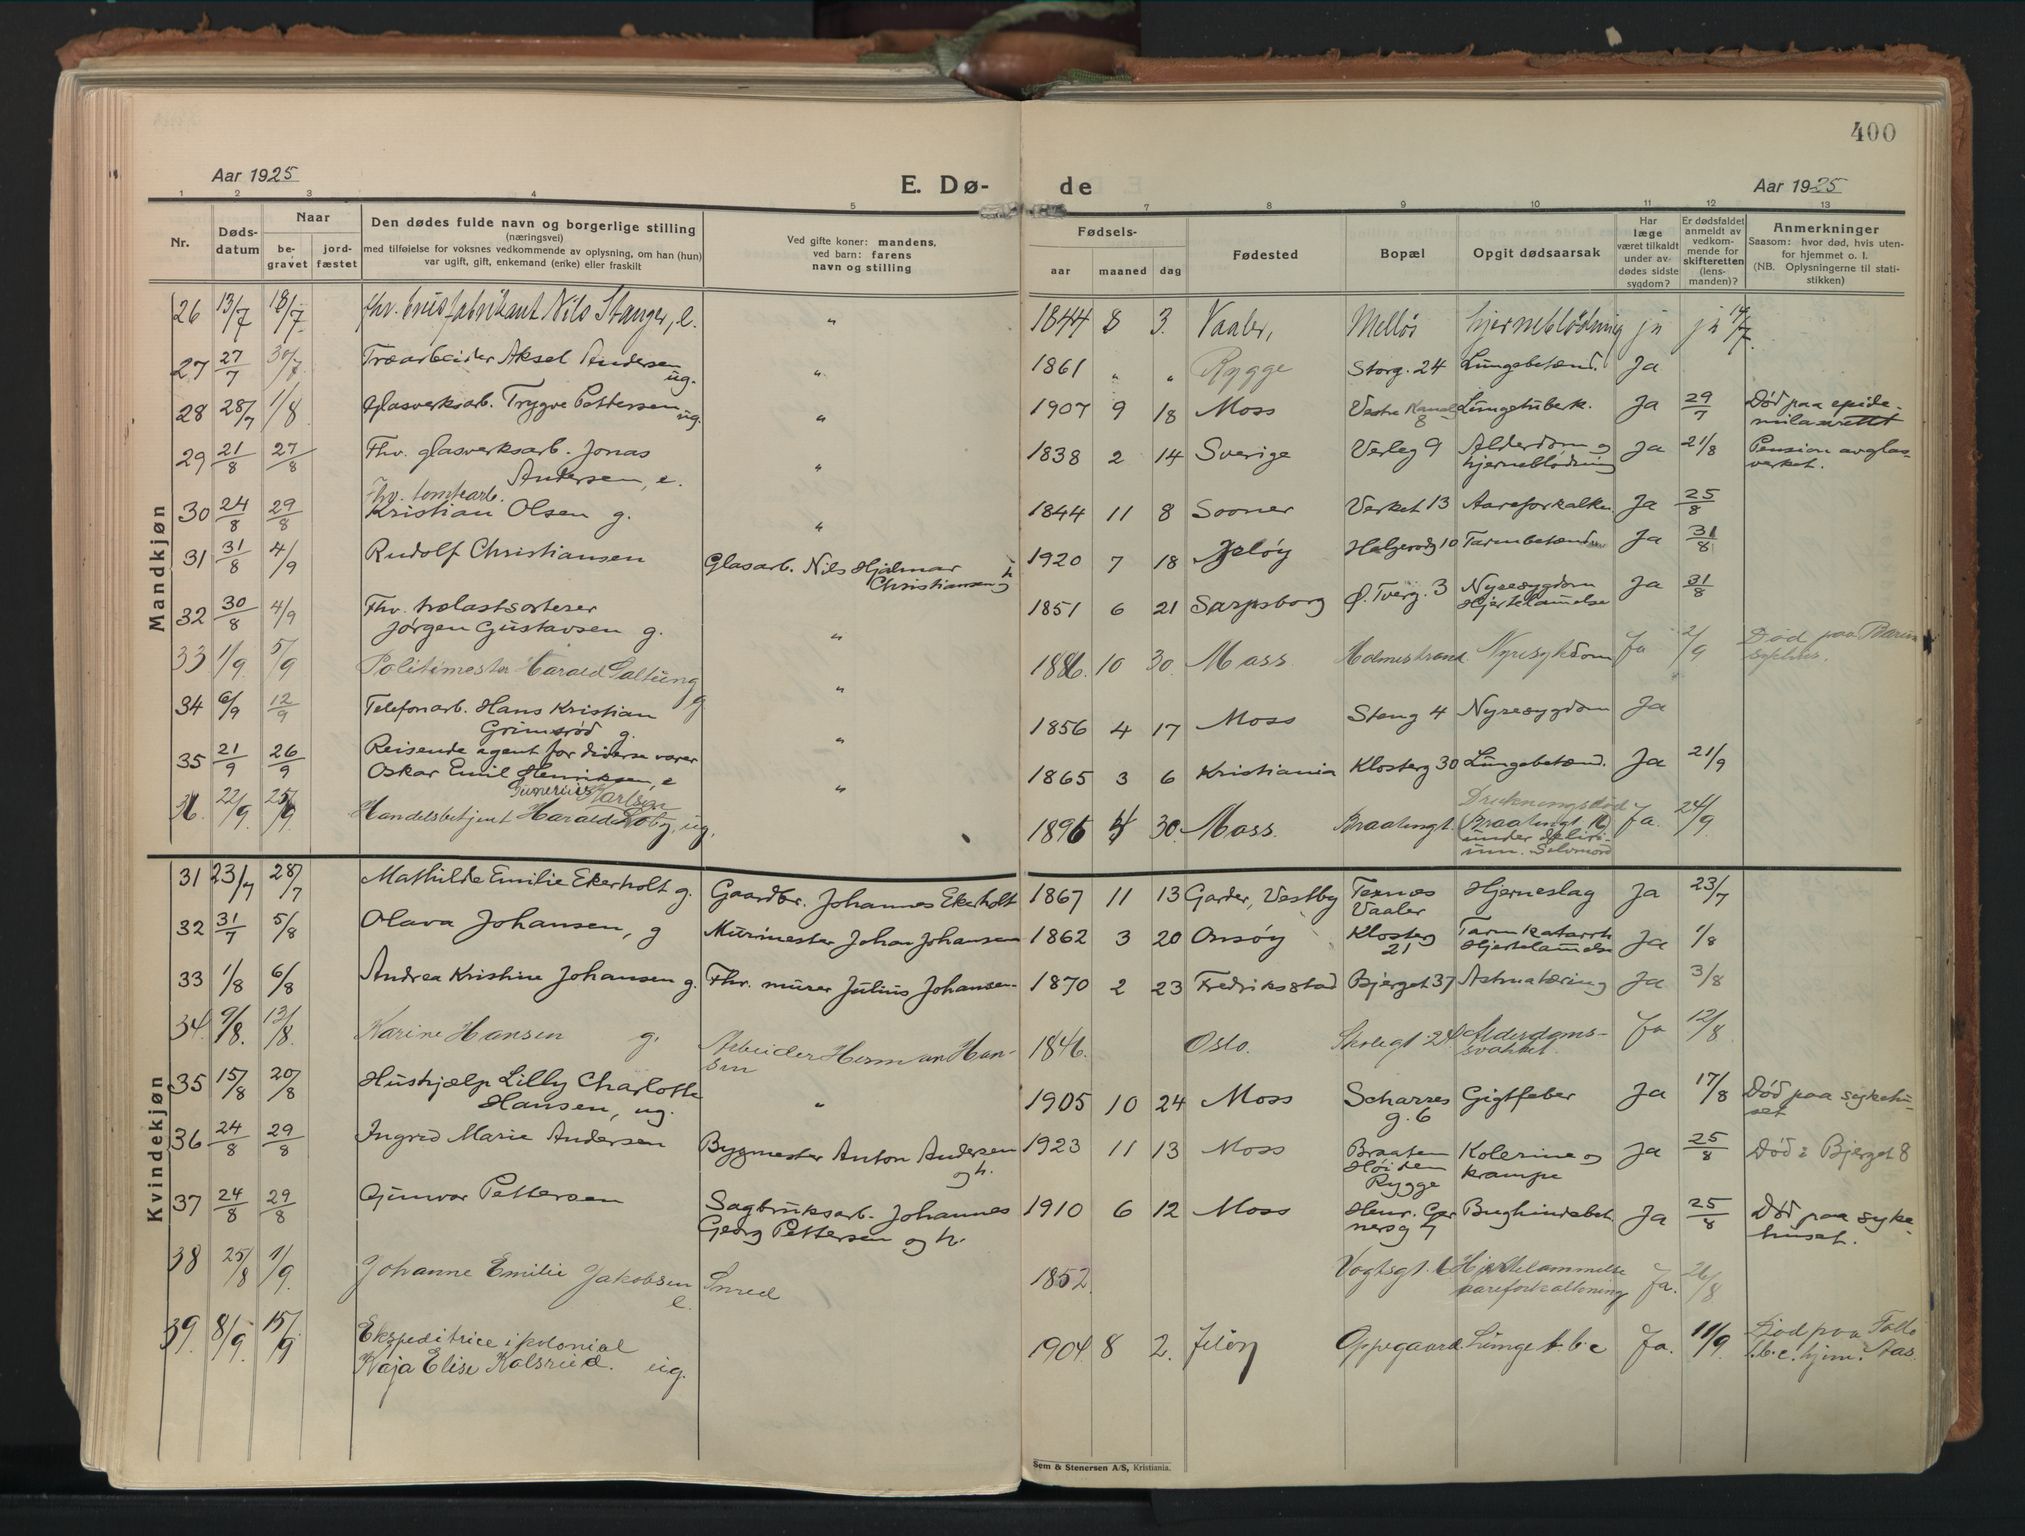 400
Aar 1925
E. Dø-
de
Aar 1925
1 2 3 4 5 7 8 9 10 11 12 13
Nr.
Døds-
datum
Naar
be-
gravet
jord-
fæstet
Den dødes fulde navn og borgerlige stilling
(næringsvei)
med tilføielse for voksnes vedkommende av oplysning, om han (hun)
var ugift, gift, enkemand (enke) eller fraskilt
Ved gifte koner: mandens,
ved barn: farens
navn og stilling
Fødsels-
aar maaned dag
Fødested
Bopæl
Opgit dødsaarsak
Har
læge
været tilkaldt
under av-
dødes sidste
sygdom?
Er dødsfaldet
anmeldt av
vedkom-
mende for
skifteretten
(lens-
manden)?
Anmerkninger
Saasom: hvor død, hvis uten-
for hjemmet o. l.
(NB. Oplysningerne til stati-
stikken)
Mandkjøn
26 13/7 18/7 fhv. brusfabrikant Nils Stanger, e. " 1844 8 3. Vaaler, Melløs hjerneblødning ja ja 14/7
27 27/7 30/7 Træarbeider Aksel Andersen " 1861 " " Rygge Storg. 24 Lungebetænd. Ja
ug.
28 28/7 1/8 Glasverksarb. Trygve Pettersen ug. " 1907 9 18 Moss Vestre Kanalg 8 Lungetuberk. Ja 29/7 Død paa epide-
milasarettet
29 21/8 27/8 Fhv. glasverksarb. Jonas " 1838 2 14 Sverige Verleg 9 Alderdom og Ja 21/8 Pension av glas-
Andersen, e. hjerneblødning verket.
Fhv. tomtearb.
30 24/8 29/8 Kristian Olsen g. " 1844 11 8 Sooner Verket 13 Aareforkalkn. Ja 25/8
31 31/8 4/9 Rudolf Christiansen Glasarb. Nils Hjalmar 1920 7 18 Jeløy Helgerødg 10 Tarmbetænd Ja 31/8
Christiansen og h.
32 30/8 4/9 Fhv. trælastsorterer " 1851 6 21 Sarpsborg Ø. Tverg. 3 Nyresygdom Ja 31/8
Jørgen Gustavsen g. Hjertelammelse
33 1/9 5/9 Politimester Harald Galtung g " 1886. 10 30. Moss. Holmestrand Nyresykdom Ja 2/9 Død paa Bærum
sykhus.
34 6/9 12/9 Telefonarb. Hans Kristian " 1856 4 17 Moss Steng 4 Nyresygdom Ja
Grimsrød g.
35 21/9 26/9 Reisende agent for diverse varer " 1865 3 6 Kristiania Klosterg 30 Lungebetænd. Ja 21/9
Oskar Emil Henriksen, e
Gunerius Karlsen
36. 22/9. 25/9 Handelsbetjent Harald Roby, ug. 1896 4 30. Moss. Braatengt. Drukningsdød Ja. 24/9
(Braatengt. 16)
under deliri-
um. Selvmord
Kvindekjøn
31 23/7 28/7 Mathilde Emilie Ekerholt g. Gaardbr. Johannes Ekerholt 1867 11 13 Garder, Vestby Texnæs Hjerneslag Ja 23/7
Vaaler
32 31/7 5/8 Olava Johansen, g Murmester Johan Johansen 1862 3 20 Onsøy Klosterg Tarmkatarrh Ja 1/8
21 Hjertelammelse
33 1/8 6/8 Andrea Kristine Johansen g. Fhv. murer Julius Johansen. 1870 2 23 Fredriksstad Bjerget 37 Astmatæring Ja 3/8
34. 9/8. 13/8. Karine Hansen g. Arbeider Herman Han- 1846. Oslo. Skolegt 24 Alderdoms- Ja 12/8
sen svakhet.
35 15/8 20/8 Hushjælp Lilly Charlotte " 1905 10 24 Moss Scharres Gigtfeber Ja 17/8 Død paa sykehu-
Hansen, ug. g. 6 set
36 24/8 29/8 Ingrid Marie Andersen Bygmester Anton Andersen 1923 11 13 Moss Braaten Kolerine og Ja 25/8 Død i Bjerget 8
og h. Høiden krampe
Rygge
37 24/8 29/8 Gunvor Pettersen Sagbruksarb. Johannes 1910 6 12 Moss Henr. Ger Bughindebet. Ja 25/8 Død paa syke-
Georg Pettersen og h. nersg 7 huset.
38 25/8 1/9. Johanne Emilie Jakobsen Smed 1852 Vogtsgt. Hjertelammelse Ja. 26/8
e. aareforkalkning
39. 8/9. 15/9 Ekspeditrice i kolonial 1904. 8 2. Jeløy Oppegaard Lunge t.b.c Ja. 11/9 Død paa Follo
Kaja Elise Kolsrud. ug. t.b.c. hjem. Aas.
Sem & Stenersen A/S, Kristiania.